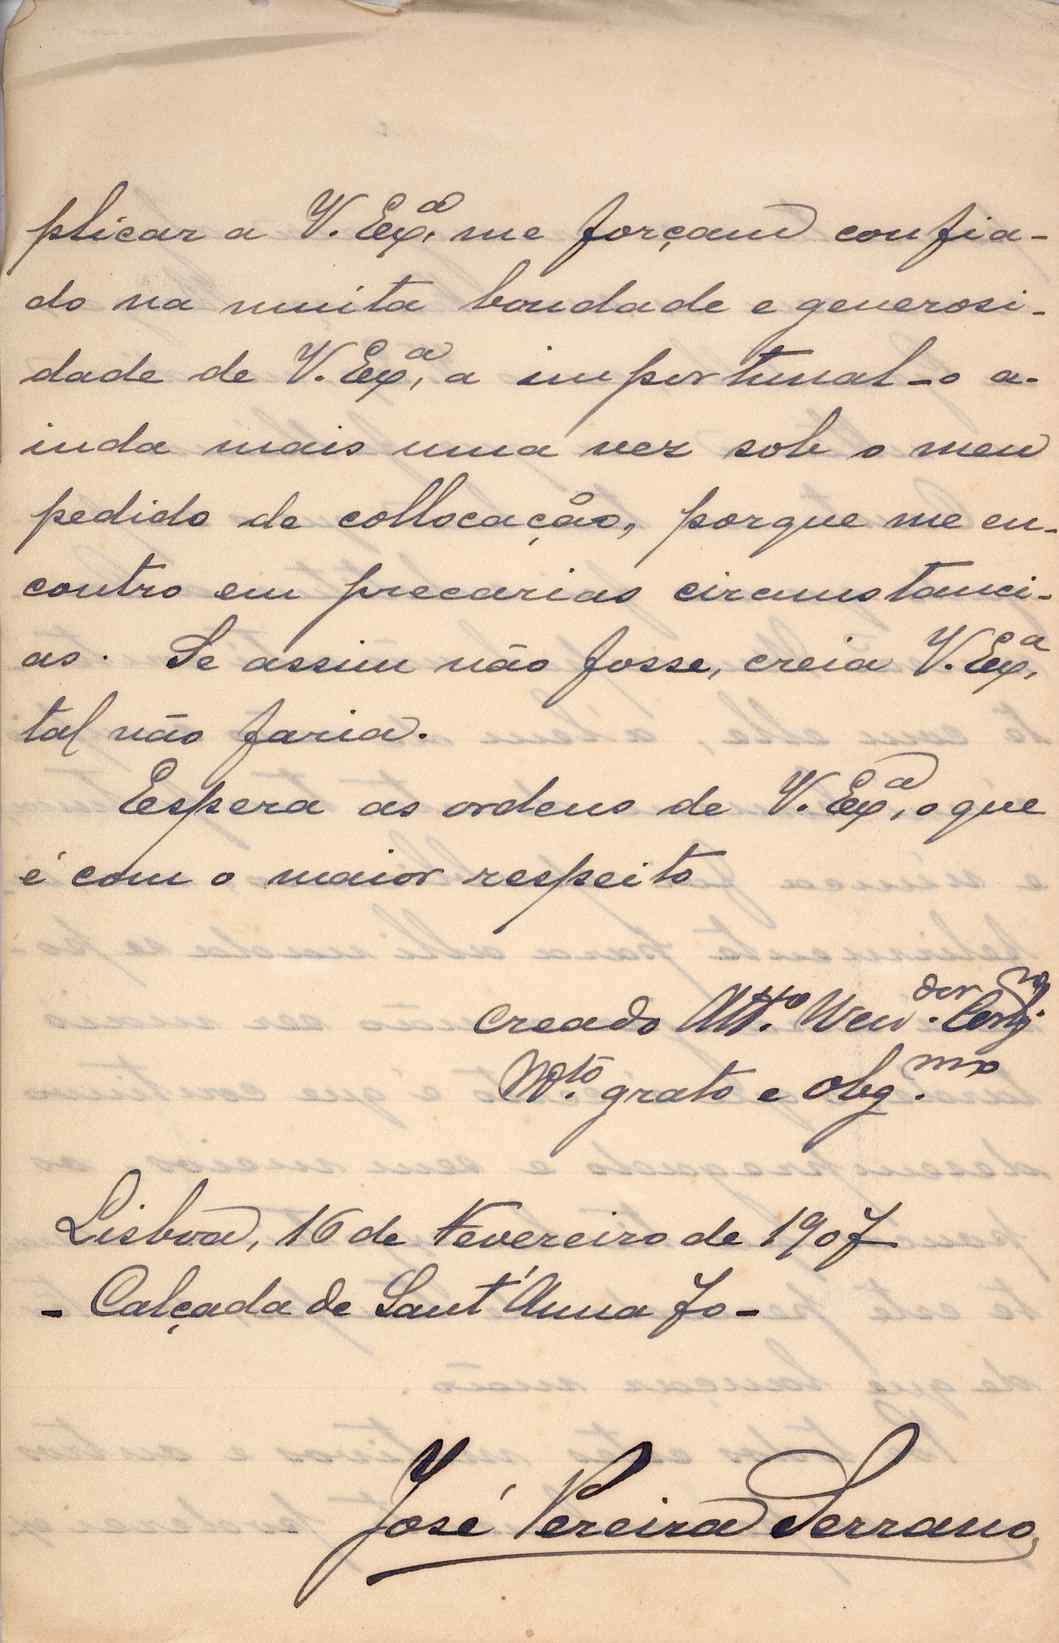 plicar a V. Exª. me forçam confia-
do na muita bondade e generosi-
dade de V. Exª, a importunal-o a-
inda mais uma vez sob o meu
pedido de collocação, porque me en-
contro em precarias circumstanci-
as. Se assim não fosse, creia V. Exª,
tal não faria.
Espera as ordens de V. Exª, o que
é com o maior respeito
creado Att.to Ven.dor
M.to grato e Obg.mo
Lisboa, 16 de Fevereiro de 1907
- Calçada de Sant'Anna 70 -
José Pereira Serrano